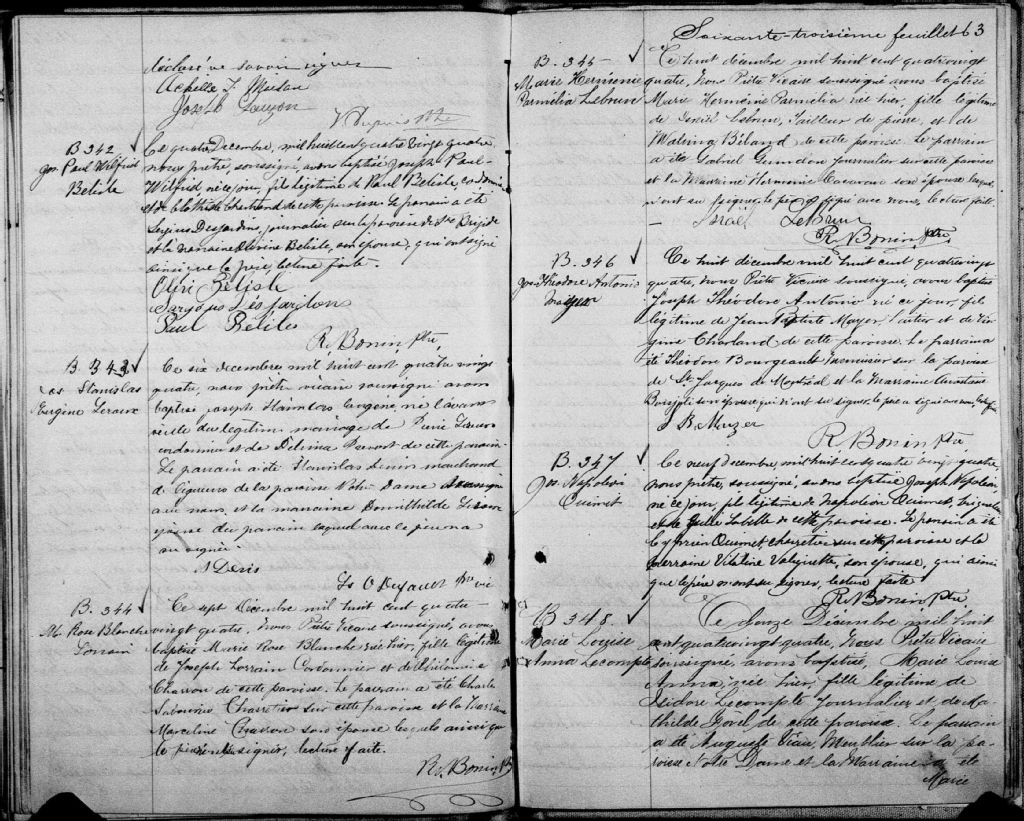 déclaré ne savoir signer
Joseph Lauzon
B 342
Jos. Paul Wilfrid
Belisle
Ce quatre Decembre, mil huit cent quatre vingt quatre,
nous prêtre, soussigné, avons baptisé Joseph Paul-
Wilfrid né ce jour, fils légitime de Paul Belisle, cordonnier
et de Clothilde Chartrand de cette paroisse. Le parrain a été
Sergius Desjardins, journalier sur la paroisse de Ste Brigide
et la marraine Belisle, son épouse, qui ont signé
ainsi que le père, lecture faite.
Belisle
Desjardins
Paul Belisle
R. Bonin Ptre
B 343
Jos Stanislas
Eugène
Ce six decembre mil huit cent quatre vingt
quatre, nous prêtre vicaire soussigné avons
baptisé Joseph Stanislas Eugène, né l'avant
veille du légitime mariage de Pierre
cordonnier et de Délima de cette paroisse.
Le parrain a été Stanislas Denis marchand
de liqueurs de la paroisse Notre Dame
et la marraine
épouse du parrain lequel avec le père n'a
su signer.
S Denis
Ptre vic
B. 344
M. Rose Blanche
Lorrain
Ce sept Décembre mil huit cent quatre-
vingt quatre, Nous Prêtre Vicaire soussigné, avons
baptisé Marie Rose Blanche née hier, fille légitime
de Joseph Lorrain Cordonnier et de Philomène
Charron de cette paroisse. Le parrain a été Charles
Sabourin Charretier sur cette paroisse et la Marraine
Marceline Charron son épouse lesquels ainsi que
le père n'ont su signer, lecture faite.
R. Bonin, Ptr
Soixante-troisième feuillet 63
B. 345
Marie Herménie
Parmélia Lebrun
Ce huit décembre mil huit cent quatrevingt
quatre, Nous Prêtre Vicaire soussigné avons baptisé
Marie Herménie Parmélia née hier, fille légitime
de Israël Lebrun, Tailleur de pierre, et de
Béland de cette paroisse. Le parrain
a été Gabriel Journalier sur cette paroisse
et la Marraine Hermenie son épouse lesquels
n'ont su signer, le père a signé avec nous, lecture faite
Israel LeBrun
R. Bonin, Ptre
B. 346
Jos Théodore Antonio
Mayer
Ce huit décembre mil huit cent quatrevingt
quatre, Nous Prêtre Vicaire soussigné, avons baptisé
Joseph Théodore Antonio né ce jour, fils
légitime de Jean Baptiste Mayer, et de Vir-
ginie Charland de cette paroisse. Le parrain a
été Théodore Bourgeault Menuisier sur la paroisse
de St. Jacques de Montréal et la Marraine
son épouse qui n'ont su signer, le père a signé avec nous, lecture faite
J B
R. Bonin Ptre
B. 347
Jos. Napoléon
Ouimet
Ce neuf decembre, mil huit cent quatre vingt quatre,
nous prêtre, soussigné, avons baptisé Joseph Napoléon,
né ce jour, fils légitime de Napoléon Ouimet,
et de Labelle de cette paroisse. Le parrain a été
Cyprien Ouimet, charretier sur cette paroisse et la
marraine Vitaline Valiquette, son épouse, qui ainsi
que le père n'ont su signer, lecture faite
R. Bonin Ptre
B 348
Marie Louise
Anna Lecompte
Ce Décembre mil huit
cent quatrevingt quatre, Nous Prêtre Vicaire
soussigné, avons baptisé, Marie Louise
Anna, née hier, fille légitime de
Isidore Lecompte Journalier et de Ma-
thilde de cette paroisse. Le parrain
a été Auguste Viau, Meublier sur la pa-
roisse Notre Dame et la Marraine a été
Marie